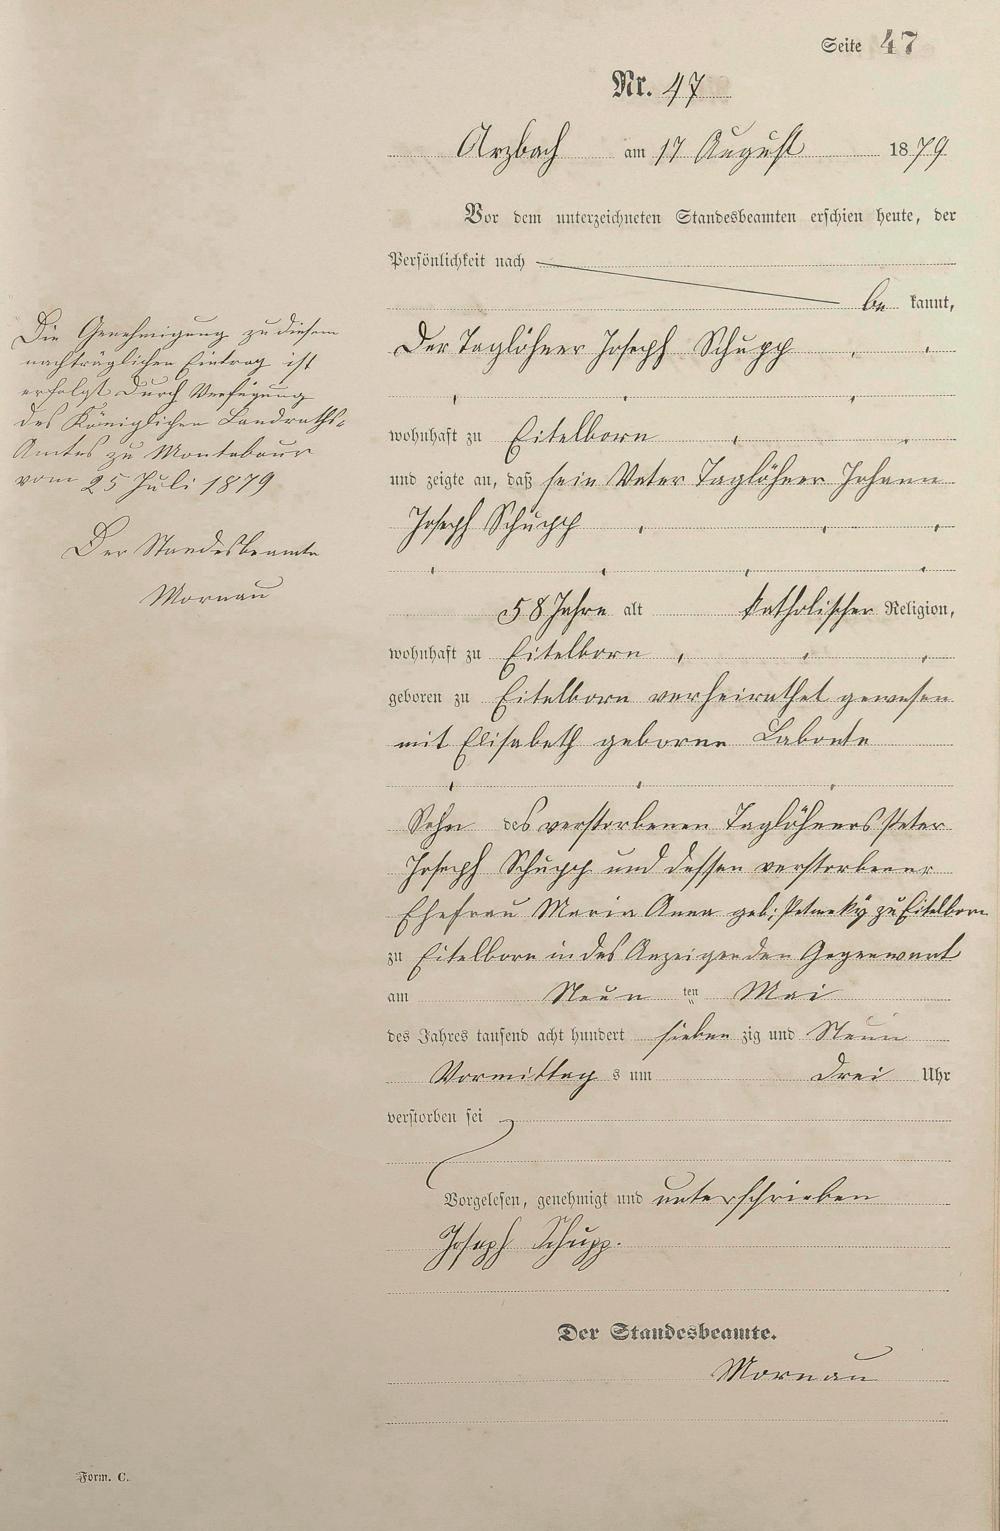 Seite 47
Nr. 47
Arzbach am 17 August 1879
Vor dem unterzeichneten Standesbeamten erschien heute, der
Persönlichkeit nach
be kannt,
Der Taglöhner Joseph Schupp
wohnhaft zu Eitelborn
und zeigte an, daß sein Vater Taglöhner Johann
Joseph Schupp
58 Jahre alt katholischer Religion,
wohnhaft zu Eitelborn
geboren zu Eitelborn verheirathet gewesen
mit Elisabeth geborne Labonte
Sohn des verstorbenen Taglöhners Peter
Joseph Schupp und dessen verstorbener
Ehefrau Maria Anna geb: zu Eitelborn
zu Eitelborn in des Anzeigenden Gegenwart
am Neun ten Mai
des Jahres tausend acht hundert sieben zig und Neun
Vormittag s um Drei Uhr
verstorben sei
Vorgelesen, genehmigt und unterschrieben
Joseph Schupp.
Der Standesbeamte.
Mornau
Die Genehmigung zu diesem
nachträglichen Eintrag ist
erfolgt durch Verfügung
des Königlichen Landraths-
Amtes zu Montabaur
vom 25 Juli 1879
Der Standesbeamte
Mornau
Form. C.